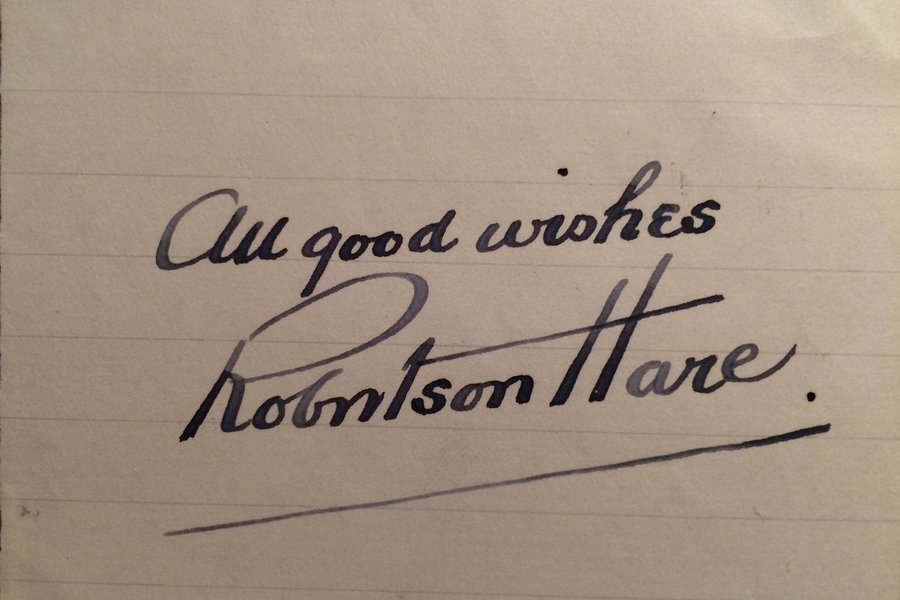 All good wishes
Robertson Hare.